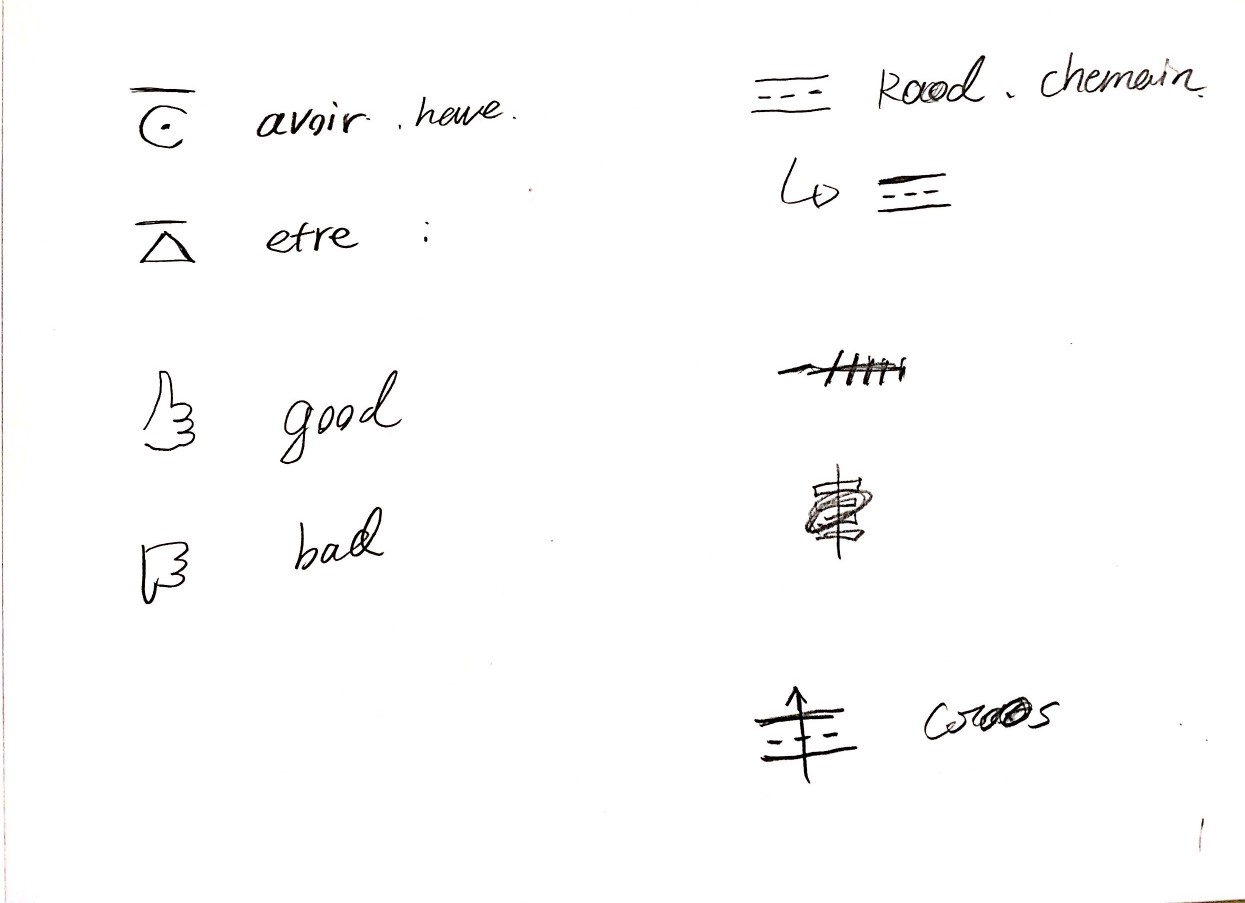 avoir. have.
etre :
good
bad
Road. chemain.